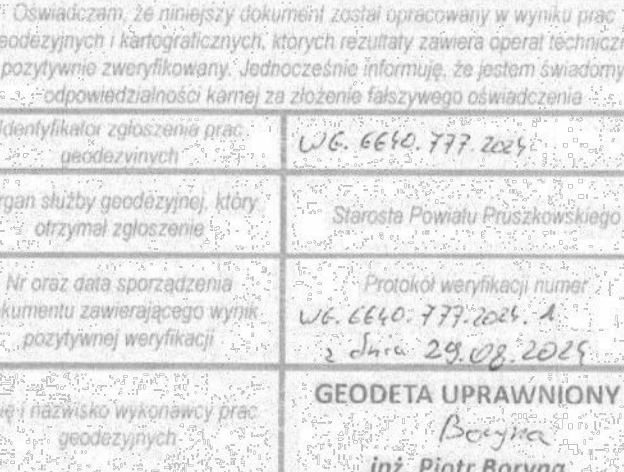 Oświadczam, że niniejszy dokument został opracowany w wyniku prac
eodezyjnych i kartograficznych, których rezultaty zawiera operat techniczn
pozytywnie zweryfikowany. Jednocześnie informuję, że jestem świadomy
odpowiedzialności karnej za złożenie fałszywego oświadczenia
Identyfikator zgłoszenia prac
geodezyjnych
WG. 6640. 777. 2024
rgan służby geodezyjnej, który
otrzymał zgłoszenie
Starosta Powiatu Pruszkowskiego
Nr oraz data sporządzenia
okumentu zawierającego wynik
pozytywnej weryfikacji
Protokół weryfikacji numer
WG. 6640. 777. 2024. 1
z dnia 29.08.2024
ię i nazwisko wykonawcy prac
geodezyjnych
GEODETA UPRAWNIONY
inż. Piotr